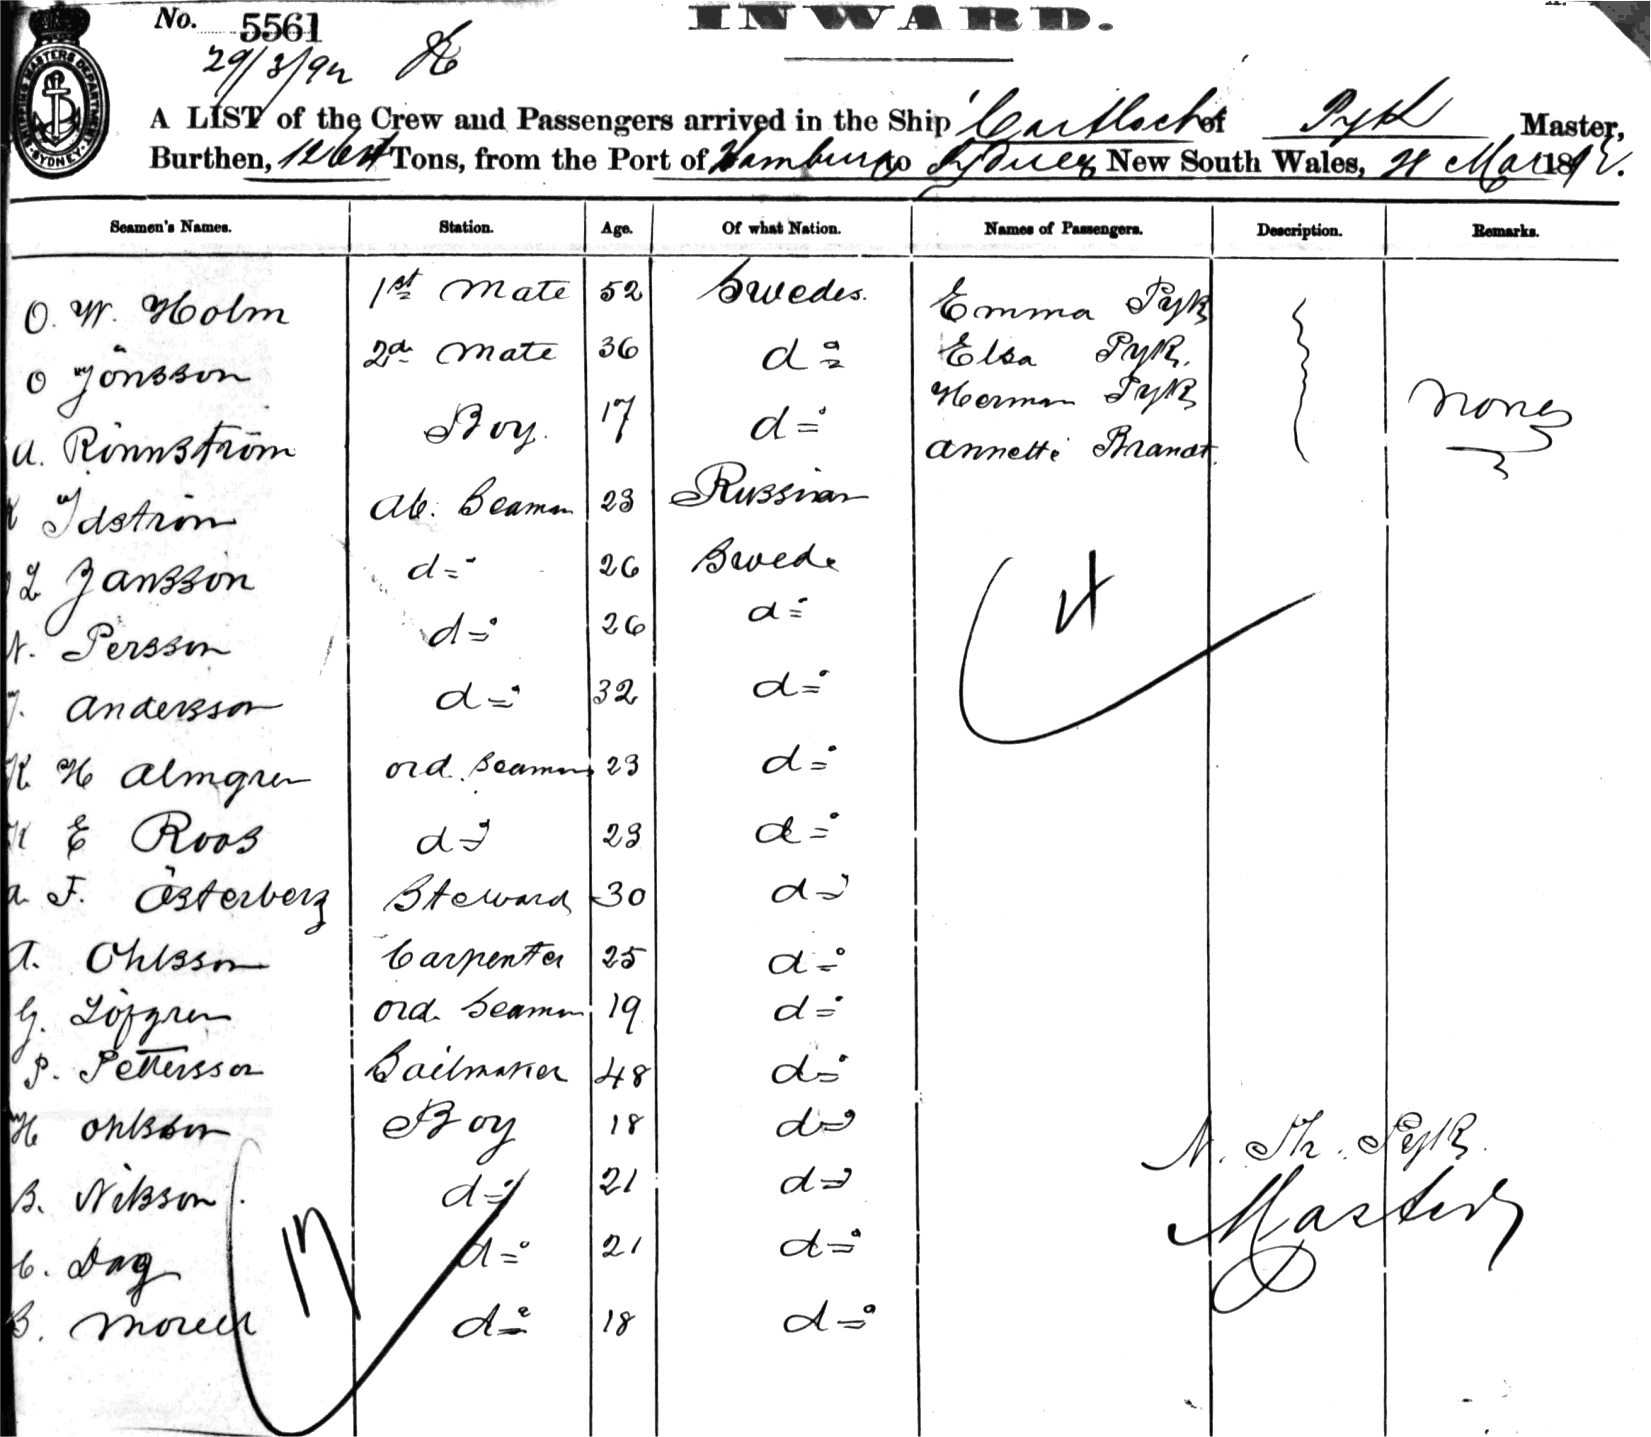 No. 5561 INWARD.
29/3/92
SHIPPING MASTERS DEPARTMENT SYDNEY
A LIST of the Crew and Passengers arrived in the Ship of Pyk Master,
Burthen, Tons, from the Port of Hamburg to Sydney New South Wales, Mar 1892.
Seamen's Names. Station. Age. Of what Nation. Names of Passengers. Description. Remarks.
O. W. Holm 1st Mate 52 Swedes. Emma Pyk
O Jönsson 2d Mate 36 do Elsa Pyk.
Herman Pyk None
A. Rönnström Boy. 17 do Annette Brandt.
Idström Ab. Seaman 23 Russian
L Jansson do 26 Swede
N. Persson do 26 do
J. Andersson do 32 do
K. H Almgren ord. Seaman 23 do
K E Roos do 23 do
A. F. Österberg Steward 30 do
A. Ohlsson Carpenter 25 do
G. Löfgren ord. Seaman 19 do
P. Pettersson Sailmaker 48 do
H Ohlsson Boy 18 do
N. Th. Pyk.
B. Nilsson. do 21 do
Master
C. Dag do 21 do
B. Morell do 18 do
17
4